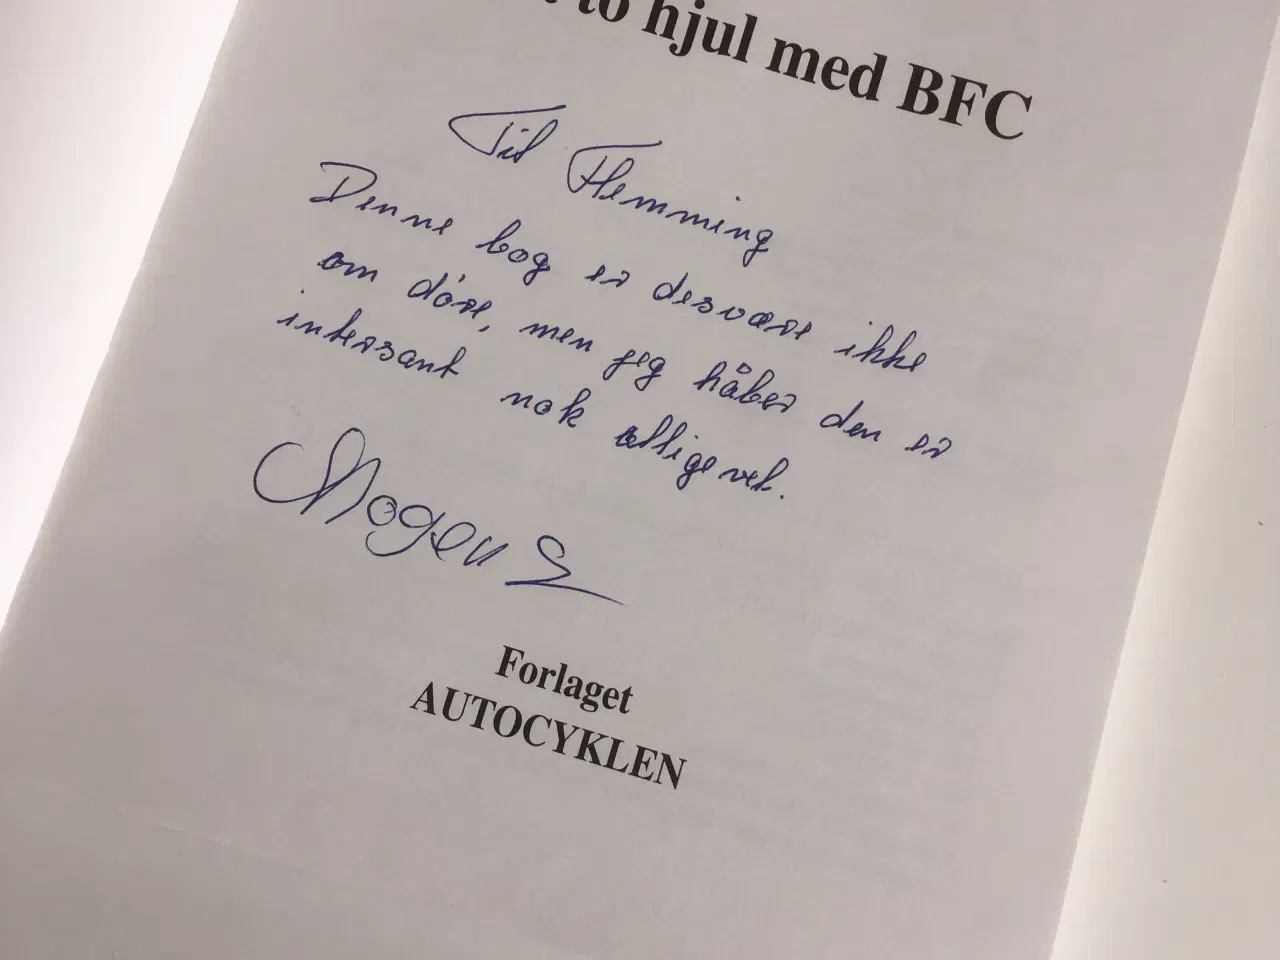 to hjul med BFC
Til Flemming
Denne bog er desværre ikke
om döre, men jeg håber den er
intersant nok alligevel.
Mogens
Forlaget
AUTOCYKLEN